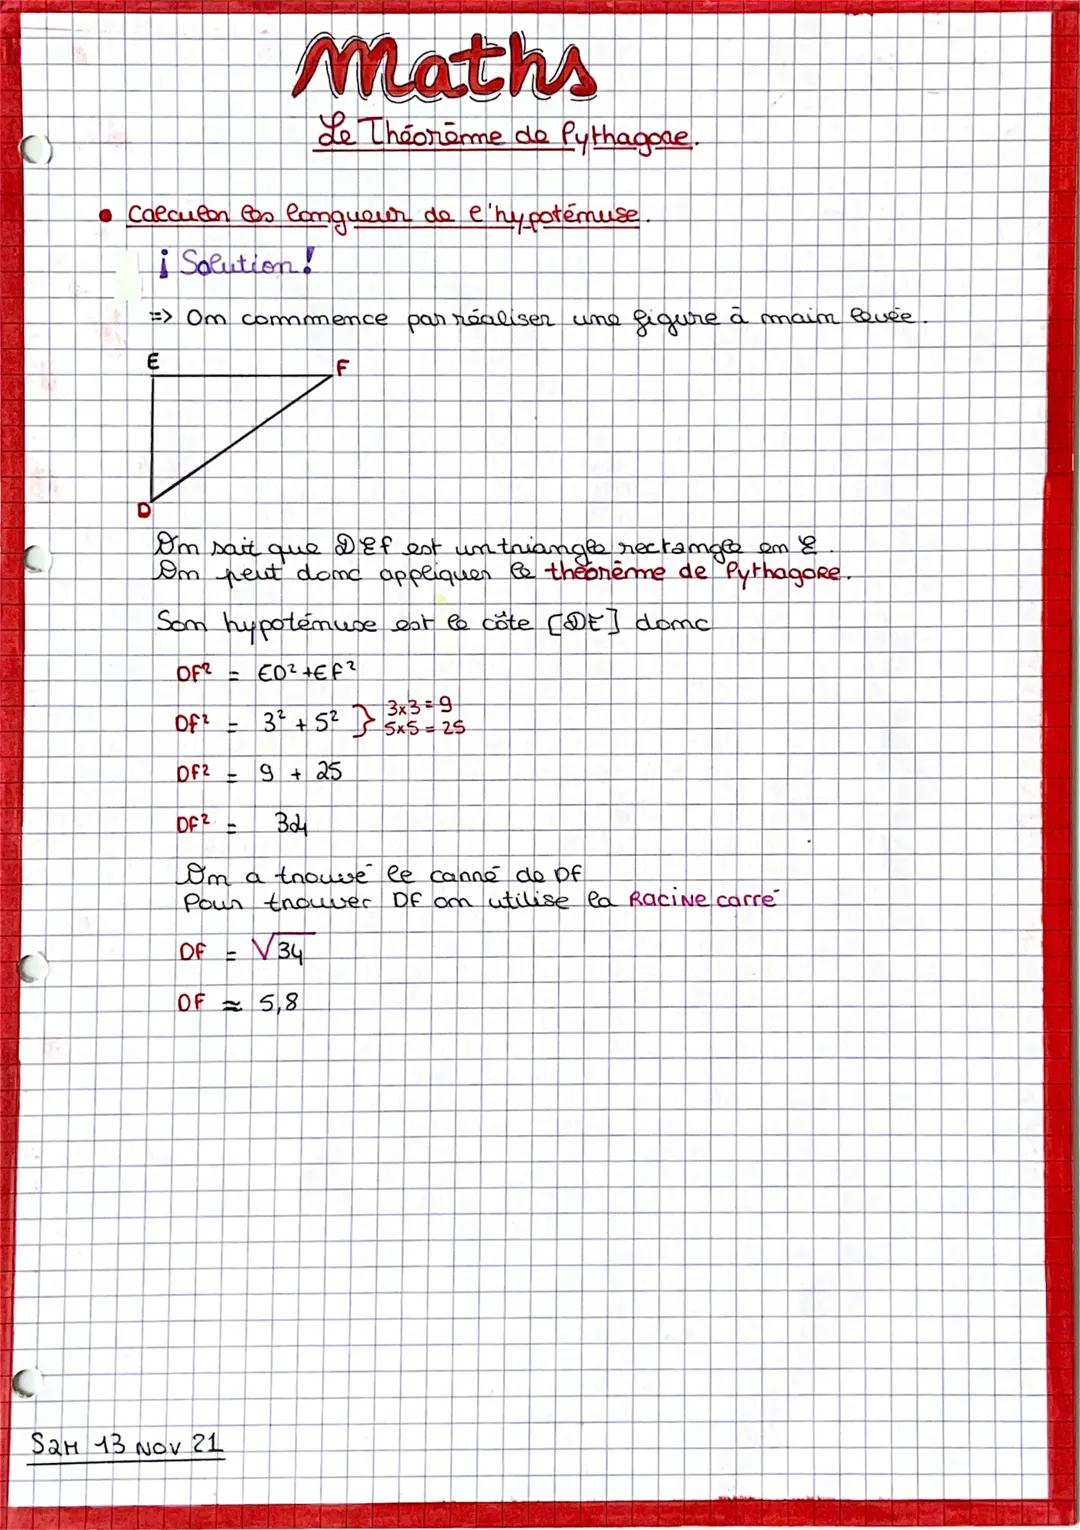 Maths
Le Théorème de Pythagore.
• Calculer la longueur de l'hypoténuse.
¡ Solution !
=> On commmence par réaliser une figure à main levée.
E
F
D
On sait que DEF est un triangle rectangle en E.
On peut donc appliquer le théorème de Pythagore.
Son hypoténuse est le côte [DF] donc
DF² = ED² + EF²
DF² = 3² + 5² } 3x3 = 9
5x5 = 25
DF² = 9 + 25
DF² = 34
On a trouvé le carré de DF
Pour trouver DF on utilise la Racine carré
DF = √34
DF ≈ 5,8
S2H 13 Nov 21